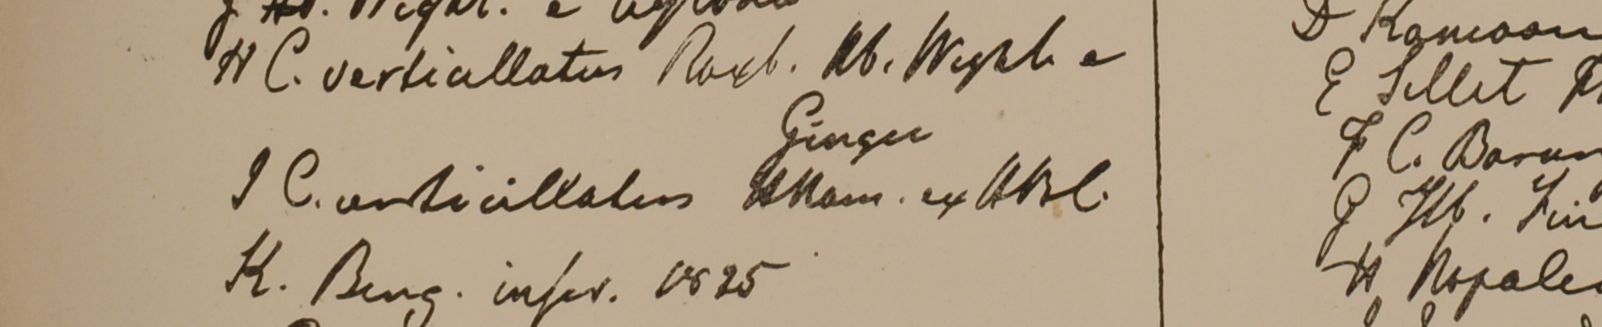 G Hb. Wight. e
H C. verticillatus Roxb. Hb. Wight e
Gingee
I C. verticillatus HHam. ex HBC.
K. Beng. infer. 1825
D Kamaon
E Sillet
F C.
G Hb. Fin
H Nopale